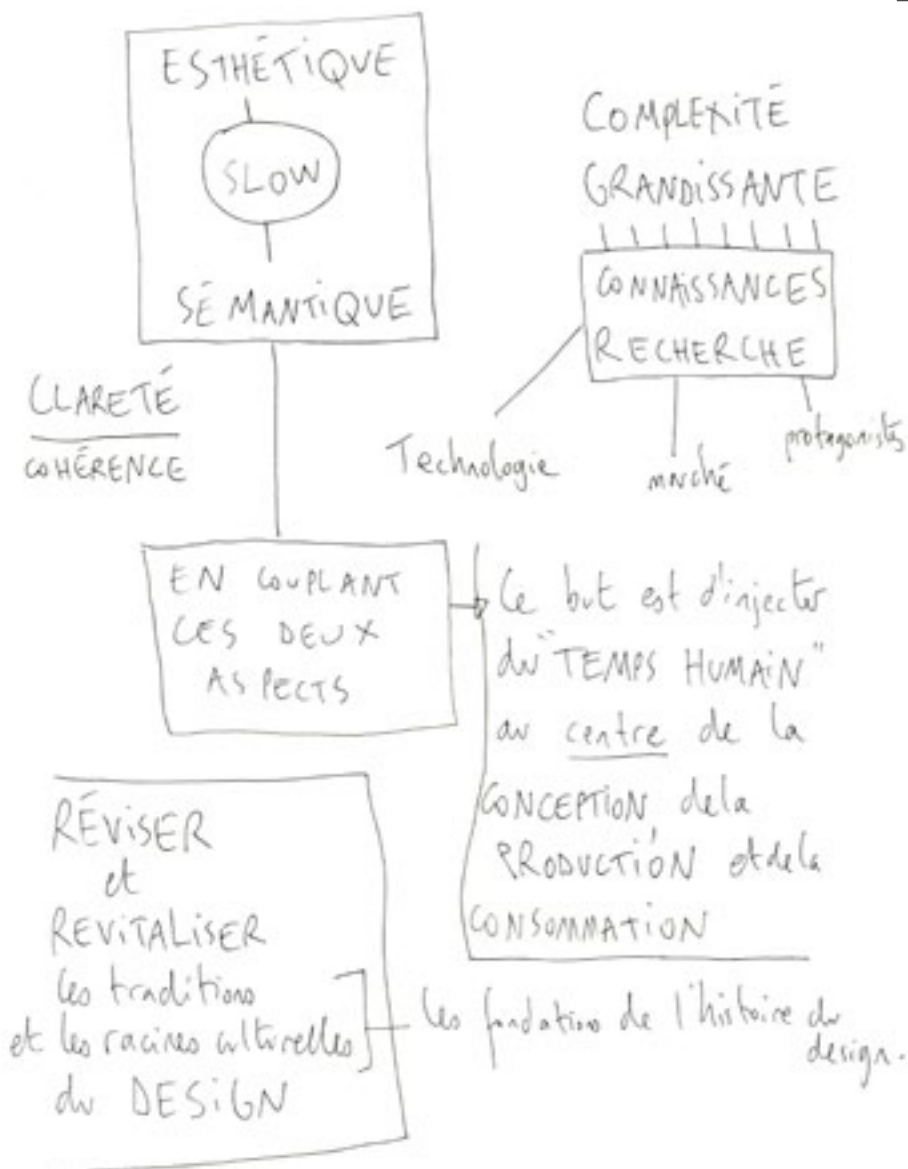 ESTHÉTIQUE
SLOW
SÉMANTIQUE
COMPLEXITÉ
GRANDISSANTE
CONNAISSANCES
RECHERCHE
Technologie
marché
protagonistes
CLARETÉ
COHÉRENCE
EN COUPLANT
CES DEUX
ASPECTS
Le but est d'injecter
du "TEMPS HUMAIN"
au centre de la
CONCEPTION de la
PRODUCTION et de la
CONSOMMATION
RÉVISER
et
REVITALISER
les traditions
et les racines culturelles
du DESIGN
les fondations de l'histoire du
design.